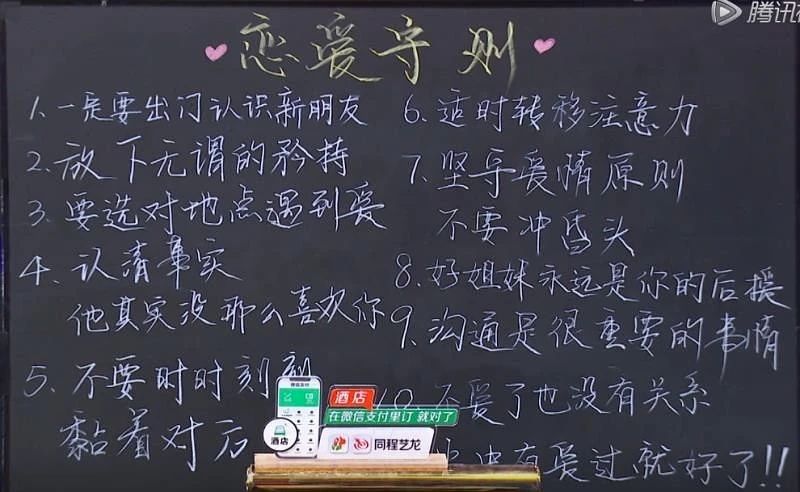 腾讯
恋爱守则
1. 一定要出门认识新朋友
2. 放下无谓的矜持
3. 要选对地点遇到爱
4. 认清事实
他其实没那么喜欢你
5. 不要时时刻刻
黏着对方
6. 适时转移注意力
7. 坚守爱情原则
不要冲昏头
8. 好姐妹永远是你的后援
9. 沟通是很重要的事情
10. 不爱了也没有关系
有爱过就好了!!
酒店
在微信支付里订 就对了
酒店
同程艺龙